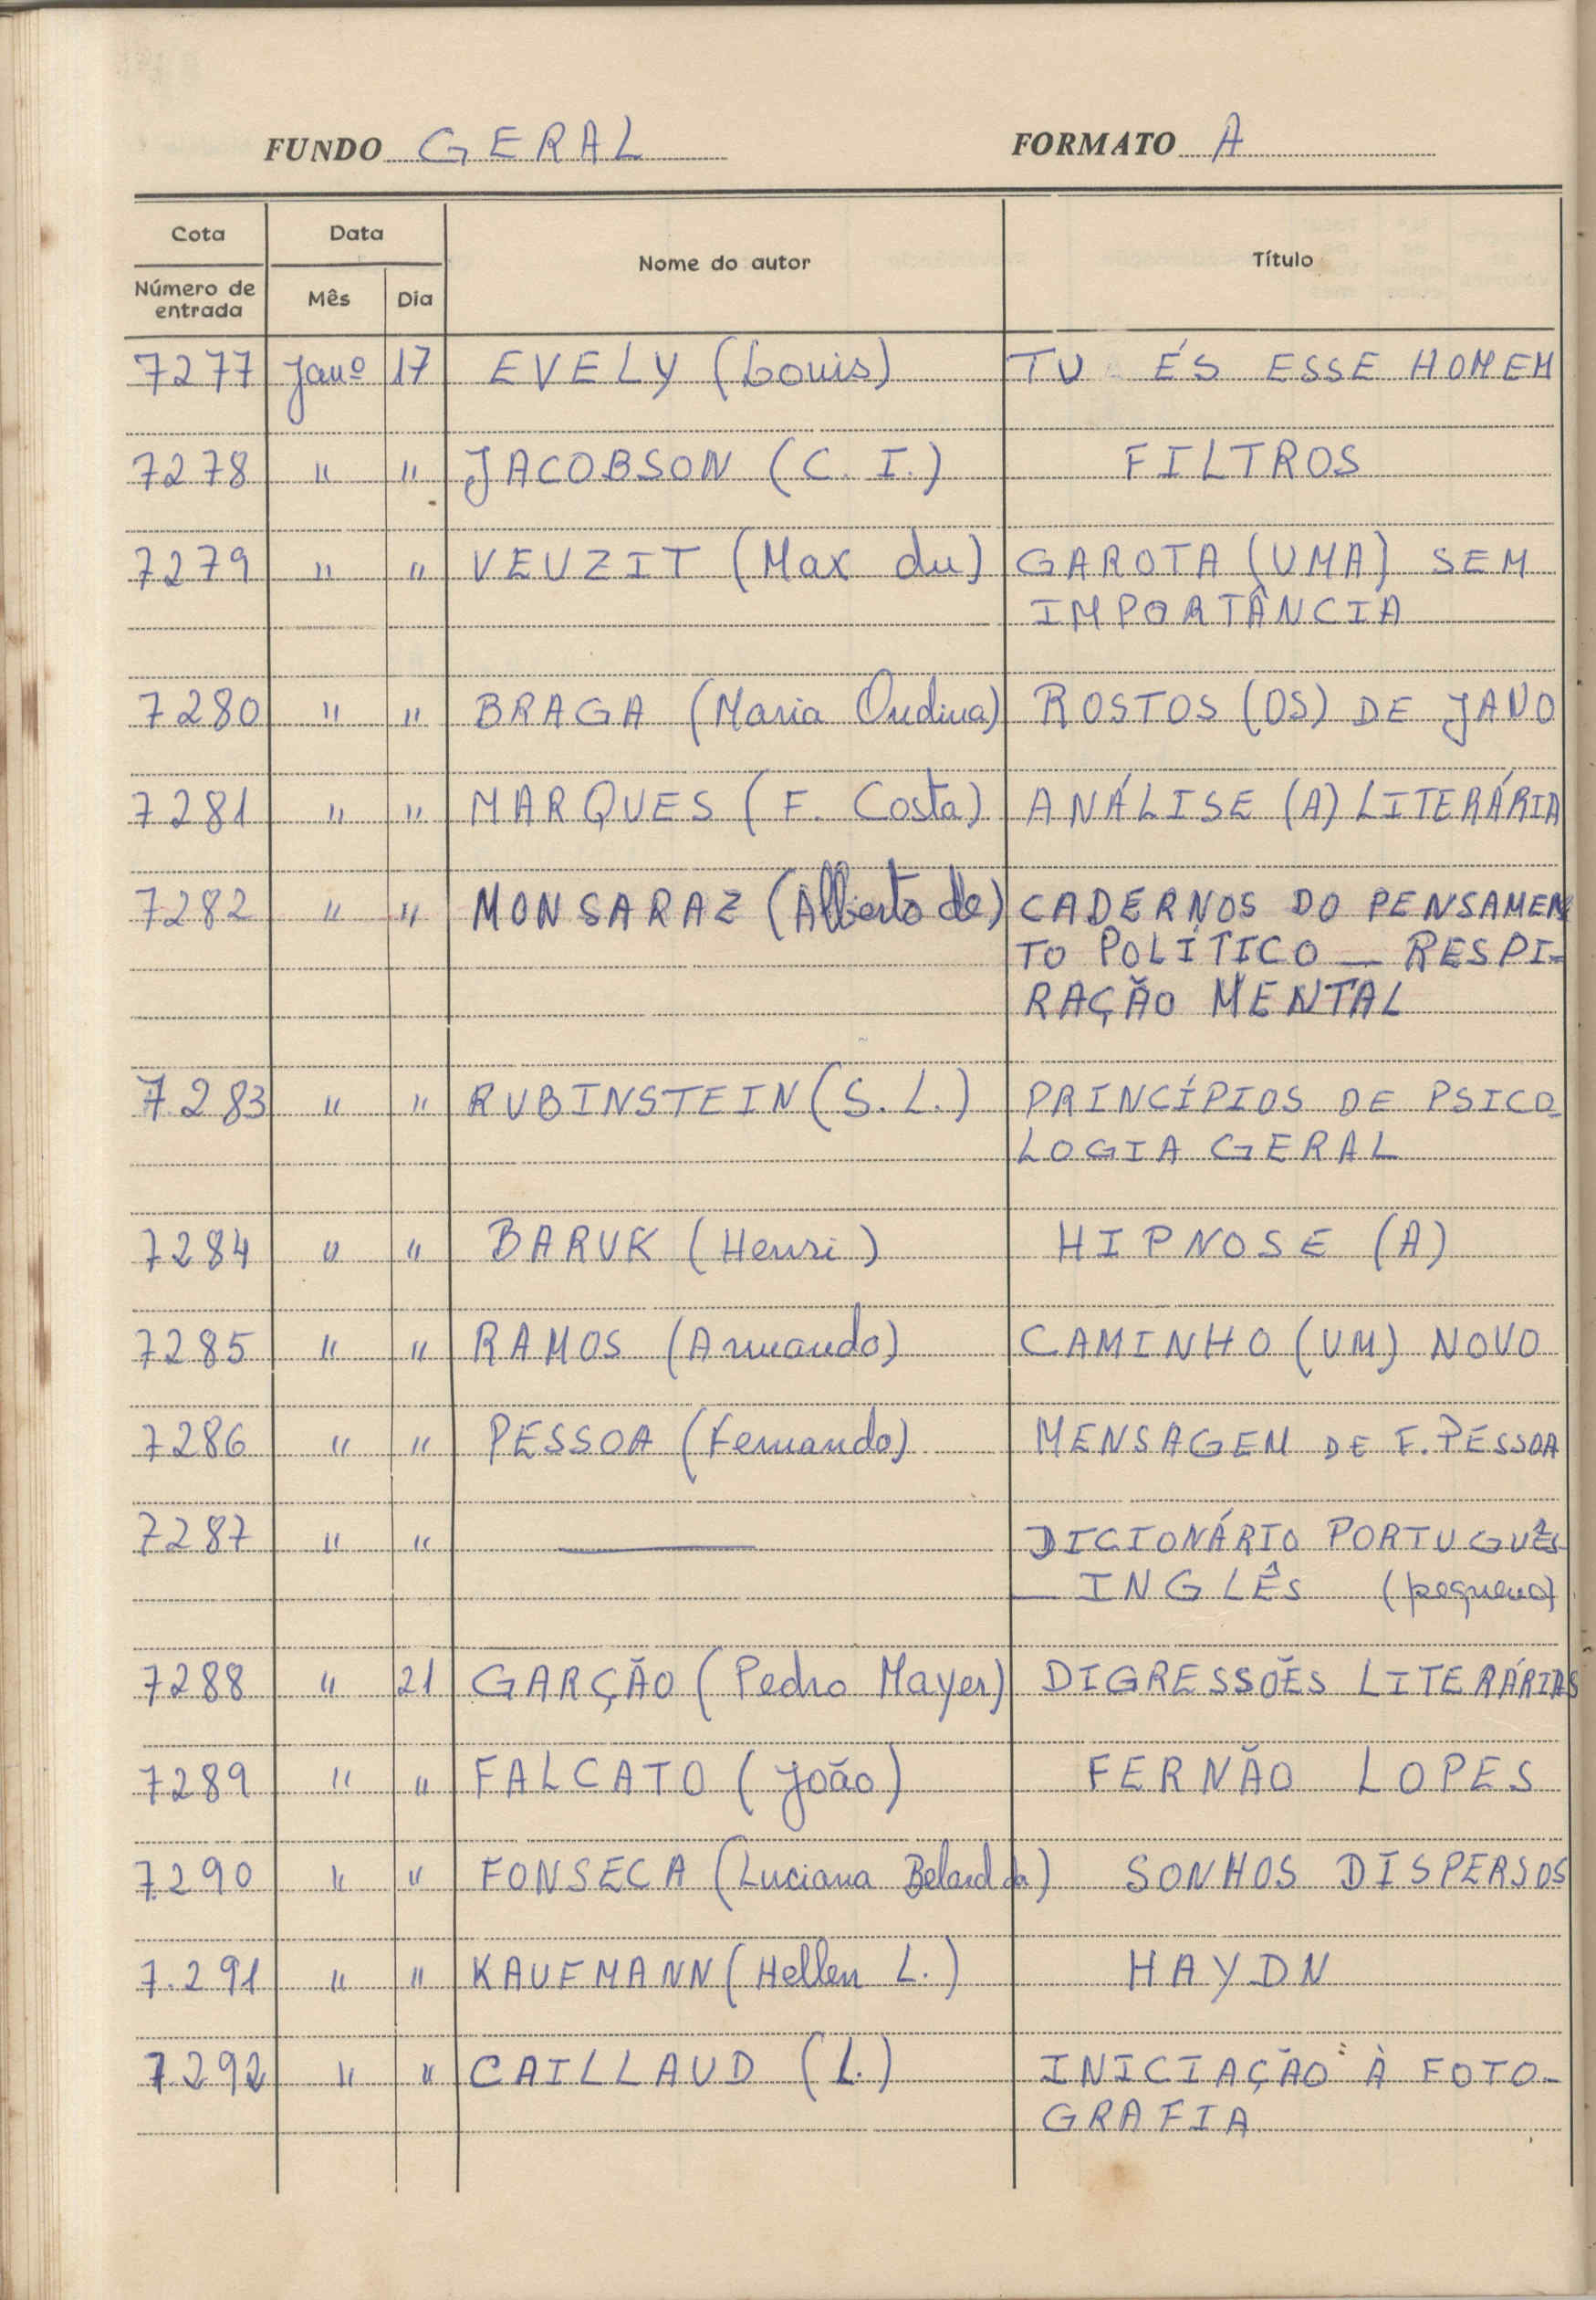 FUNDO GERAL FORMATO A
Cota Data Nome do autor Título
Número de entrada Mês Dia
7277 Janº 17 EVELY (Louis) TU ÉS ESSE HOMEM
7278 " " JACOBSON (C. I.) FILTROS
7279 " " VEUZIT (Max du) GAROTA (UMA) SEM
IMPORTÂNCIA
7280 " " BRAGA (Maria Ondina) ROSTOS (OS) DE JANO
7281 " " MARQUES (F. Costa) ANÁLISE (A) LITERÁRIA
7282 " " MONSARAZ (Alberto de) CADERNOS DO PENSAMEN
TO POLÍTICO — RESPI-
RAÇÃO MENTAL
7283 " " RUBINSTEIN (S. L.) PRINCÍPIOS DE PSICO-
LOGIA GERAL
7284 " " BARUK (Henri) HIPNOSE (A)
7285 " " RAMOS (Armando) CAMINHO (UM) NOVO
7286 " " PESSOA (Fernando) MENSAGEM DE F. PESSOA
7287 " " — DICIONÁRIO PORTUGUÊS
— INGLÊS (pequeno)
7288 " 21 GARÇÃO (Pedro Mayer) DIGRESSÕES LITERÁRIAS
7289 " " FALCATO (João) FERNÃO LOPES
7290 " " FONSECA (Luciana Belard da) SONHOS DISPERSOS
7.291 " " KAUFMANN (Hellen L.) HAYDN
7292 " " CAILLAUD (L.) INICIAÇÃO À FOTO-
GRAFIA